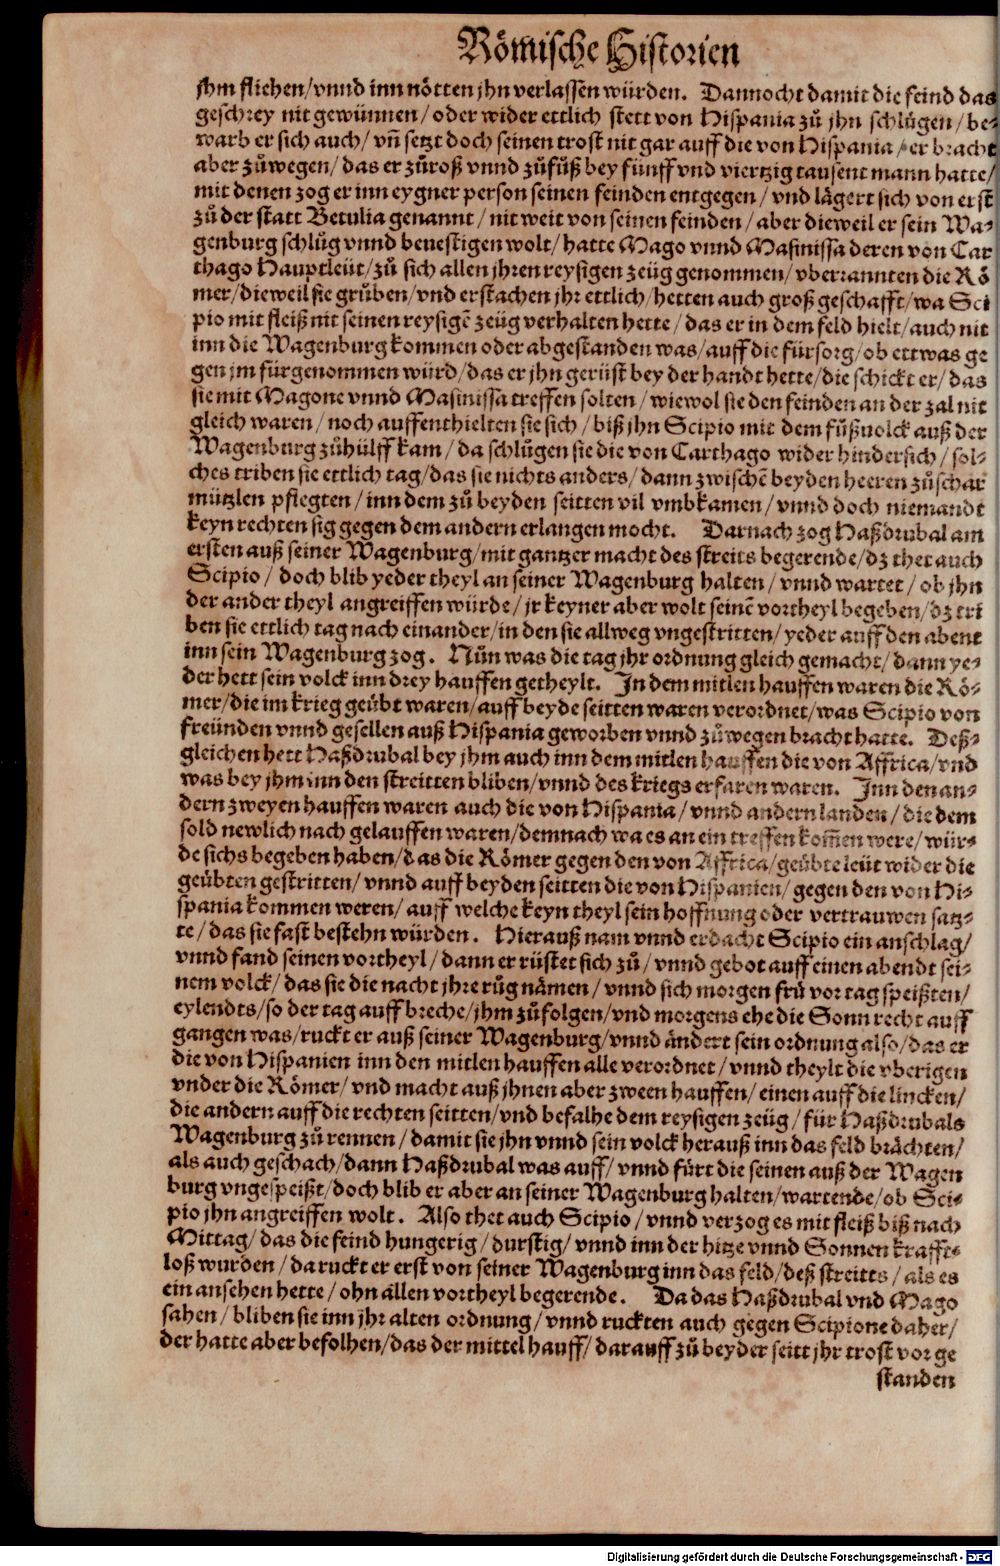 Römische Historien
jhm fliehen/vnnd inn nötten jhn verlassen würden. Dannocht damit die feind das
geschrey nit gewünnen/oder wider ettlich stett von Hispania zů jhn schlůgen/be-
warb er sich auch/vñ setzt doch seinen trost nit gar auff die von Hispania/er bracht
aber zůwegen/das er zůroß vnnd zůfůß bey fünff vnd viertzig tausent mann hatte/
mit denen zog er inn eygner person seinen feinden entgegen/vnd lägert sich von erst
zů der statt Betulia genannt/nit weit von seinen feinden/aber dieweil er sein Wa-
genburg schlůg vnnd beuestigen wolt/hatte Mago vnnd Masinissa deren von Car
thago Hauptleüt/zů sich allen jhren reysigen zeüg genommen/vberrannten die Rö
mer/dieweil sie grůben/vnd erstachen jhr ettlich/hetten auch groß geschafft/wa Sci
pio mit fleiß nit seinen reysigẽ zeüg verhalten hette/das er in dem feld hielt/auch nit
inn die Wagenburg kommen oder abgestanden was/auff die fürsorg/ob ettwas ge
gen jm fürgenommen würd/das er jhn gerüst bey der handt hette/die schickt er/das
sie mit Magone vnnd Masinissa treffen solten/wiewol sie den feinden an der zal nit
gleich waren/noch auffenthielten sie sich/biß jhn Scipio mit dem fůßuolck auß der
Wagenburg zůhülff kam/da schlůgen sie die von Carthago wider hindersich/sol-
ches triben sie ettlich tag/das sie nichts anders/dann zwischẽ beyden heeren zůschar
mützlen pflegten/inn dem zů beyden seitten vil vmbkamen/vnnd doch niemandt
keyn rechten sig gegen dem andern erlangen mocht. Darnach zog Haßdrubal am
ersten auß seiner Wagenburg/mit gantzer macht des streits begerende/dz thet auch
Scipio/doch blib yeder theyl an seiner Wagenburg halten/vnnd wartet/ob jhn
der ander theyl angreiffen würde/jr keyner aber wolt seinẽ vortheyl begeben/dz tri
ben sie ettlich tag nach einander/in den sie allweg vngestritten/yeder auff den abent
inn sein Wagenburg zog. Nůn was die tag jhr ordnung gleich gemacht/dann ye-
der hett sein volck inn drey hauffen getheylt. In dem mitlen hauffen waren die Rö-
mer/die im krieg geübt waren/auff beyde seitten waren verordnet/was Scipio von
freünden vnnd gesellen auß Hispania geworben vnnd zůwegen bracht hatte. Deß-
gleichen hett Haßdrubal bey jhm auch inn dem mitlen hauffen die von Affrica/vnd
was bey jhm inn den streitten bliben/vnnd des kriegs erfaren waren. Inn den an-
dern zweyen hauffen waren auch die von Hispania/vnnd andern landen/die dem
sold newlich nach gelauffen waren/demnach wa es an ein treffen kom̃en were/wür-
de sichs begeben haben/das die Römer gegen den von Affrica/geübte leüt wider die
geübten gestritten/vnnd auff beyden seitten die von Hispanien/gegen den von Hi-
spania kommen weren/auff welche keyn theyl sein hoffnung oder vertrauwen satz-
te/das sie fast bestehn würden. Hierauß nam vnnd erdacht Scipio ein anschlag/
vnnd fand seinen vortheyl/dann er rüstet sich zů/vnnd gebot auff einen abendt sei-
nem volck/das sie die nacht jhre růg nämen/vnnd sich morgen frů vor tag speißten/
eylendts/so der tag auff breche/jhm zůfolgen/vnd morgens ehe die Sonn recht auff
gangen was/ruckt er auß seiner Wagenburg/vnnd ändert sein ordnung also/das er
die von Hispanien inn den mitlen hauffen alle verordnet/vnnd theylt die vberigen
vnder die Römer/vnd macht auß jhnen aber zween hauffen/einen auff die lincken/
die andern auff die rechten seitten/vnd befalhe dem reysigen zeüg/für Haßdrubals
Wagenburg zů rennen/damit sie jhn vnnd sein volck herauß inn das feld brächten/
als auch geschach/dann Haßdrubal was auff/vnnd fürt die seinen auß der Wagen
burg vngespeißt/doch blib er aber an seiner Wagenburg halten/wartende/ob Sci-
pio jhn angreiffen wolt. Also thet auch Scipio/vnnd verzog es mit fleiß biß nach
Mittag/das die feind hungerig/durstig/vnnd inn der hitze vnnd Sonnen krafft-
loß wurden/da ruckt er erst von seiner Wagenburg inn das feld/deß streitts/als es
ein ansehen hette/ohn allen vortheyl begerende. Da das Haßdrubal vnd Mago
sahen/bliben sie inn jhr alten ordnung/vnnd ruckten auch gegen Scipione daher/
der hatte aber befolhen/das der mittel hauff/darauff zů beyder seitt jhr trost vor ge
standen
Digitalisierung gefördert durch die Deutsche Forschungsgemeinschaft - DFG